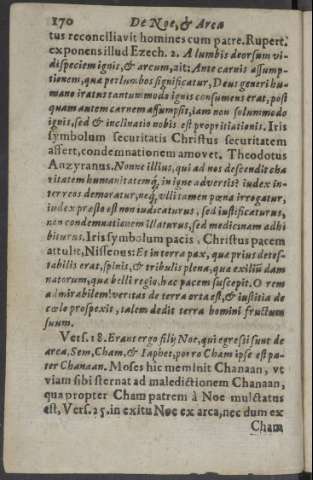 170 De Noe, & Arca
tus reconciliavit homines cum patre. Rupert.
exponens illud Ezech. 2. A lumbis deorsum vi-
dispeciem ignis, & arcum, ait: Ante carnis assump-
tionem, quæ per lumbos significatur, Deus generi hu-
mano iratus tantummodo ignis consumens erat, post
quam autem carnem assumpsit, iam non solummodo
ignis, sed & inclinatio nobis est propritiationis. Iris
symbolum securitatis Christus securitatem
affert, condemnationem amovet. Theodotus
Anzyranus. Nonne illius, qui ad nos descendit cha
ritatem humanitatemq́, in igne adversis? iudex in-
terreos demoratur, neq́, vllitamen pœna irrogatur,
iudex præsto est non iudicaturus, sed iustificaturus,
non condemnationem illaturus, sed medicinam adhi
biturus. Iris symbolum pacis, Christus pacem
attulit, Nissenus: Et in terra pax, qua prius detes-
tabilis erat, spinis, & tribulis plena, qua exiliū dam
natorum, qua belli regio, hac pacem suscepit. O rem
admirabilem! veritas de terra orta est, & iustitia de
cœlo prospexit, talem dedit terra homini fructum
suum.
Vers. 18. Erant ergo filij Noe, qui egressi sunt de
arca, Sem, Cham, & Iaphet, porro Cham ipse est pa-
ter Chanaan. Moses hic meminit Chanaan, vt
viam sibi sternat ad maledictionem Chanaan,
qua propter Cham patrem à Noe mulctatus
est, Vers. 25. in exitu Noe ex arca, nec dum ex
Cham